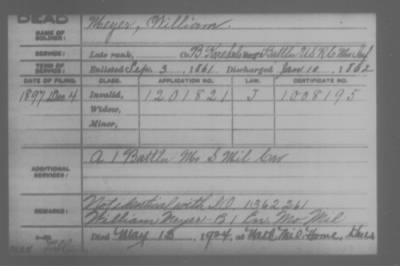 DEAD
NAME OF SOLDIER: Meyer, William
SERVICE: Late rank, Co. B Battln U.S.R.C. Mo Inf
TERM OF SERVICE: Enlisted Sept. 3, 1861 Discharged Jan 10, 1862
DATE OF FILING. CLASS. APPLICATION NO. LAW. CERTIFICATE NO.
1897 Dec 4 Invalid, 1201821 J 1008195
Widow,
Minor,
ADDITIONAL SERVICES: A 1 Battln Mo S Mil Cav
REMARKS: Not identical with I.O. 1362261
William Meyer - B 1 Cav Mo Mil
Died May 15, 1904, at Nat'l Mil Home,